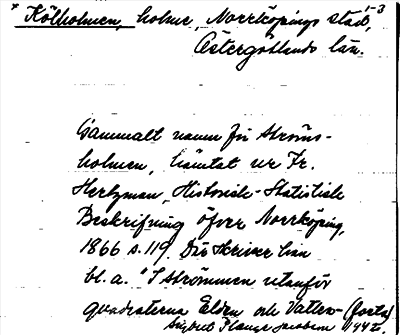 * Kölholmen, holme, Norrköpings stad, 1-3
Östergötlands län.
Gammalt namn för Ströms-
holmen, hämtat ur Fr.
Hertzman, Historisk-Statistisk
Beskrifning öfver Norrköping,
1866 s. 119. Där skriver han
bl. a. "I strömmen utanför
quadraterna Elden och Vatten- (forts)
1942.